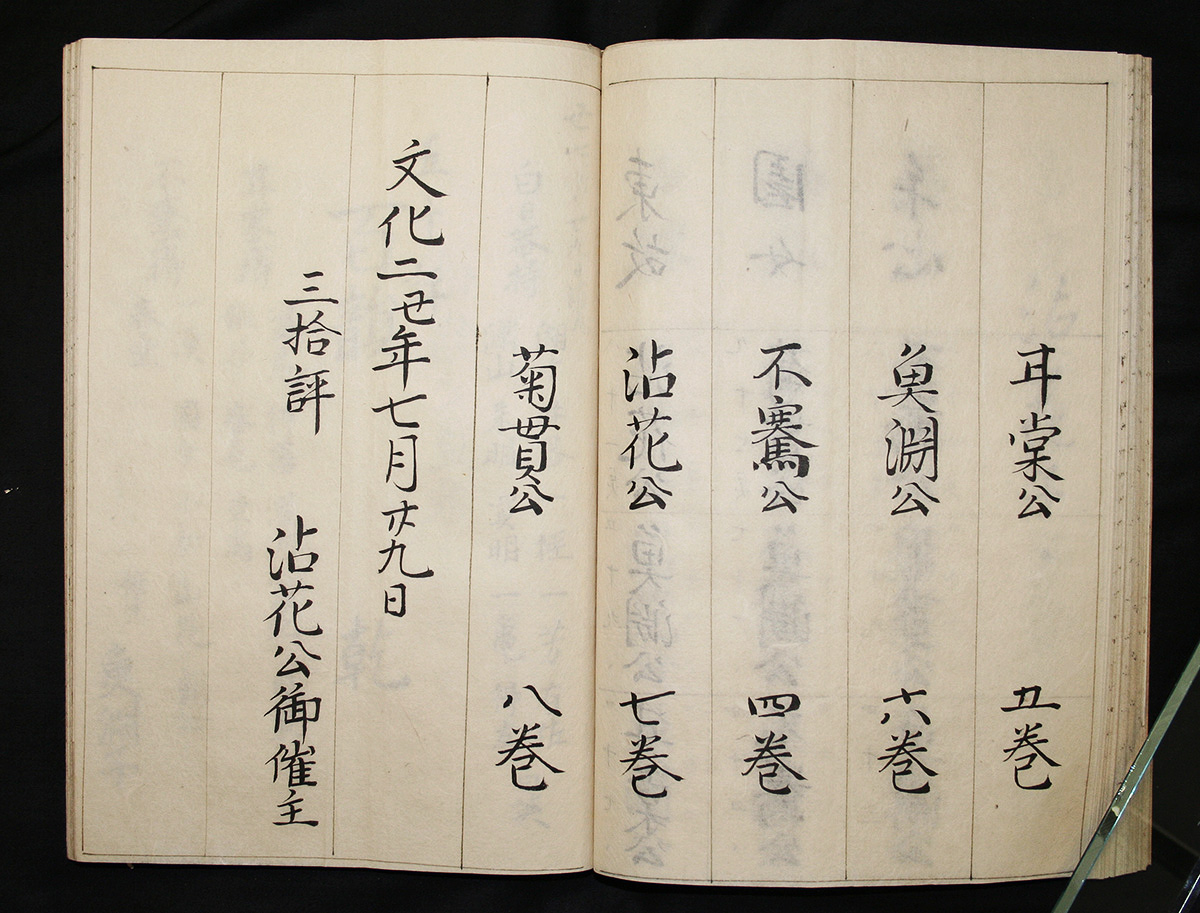 耳棠公 五巻
奥淵公 六巻
不騫公 四巻
沾花公 七巻
菊貫公 八巻
文化二丑年七月廿九日
三拾評 沾花公御催主